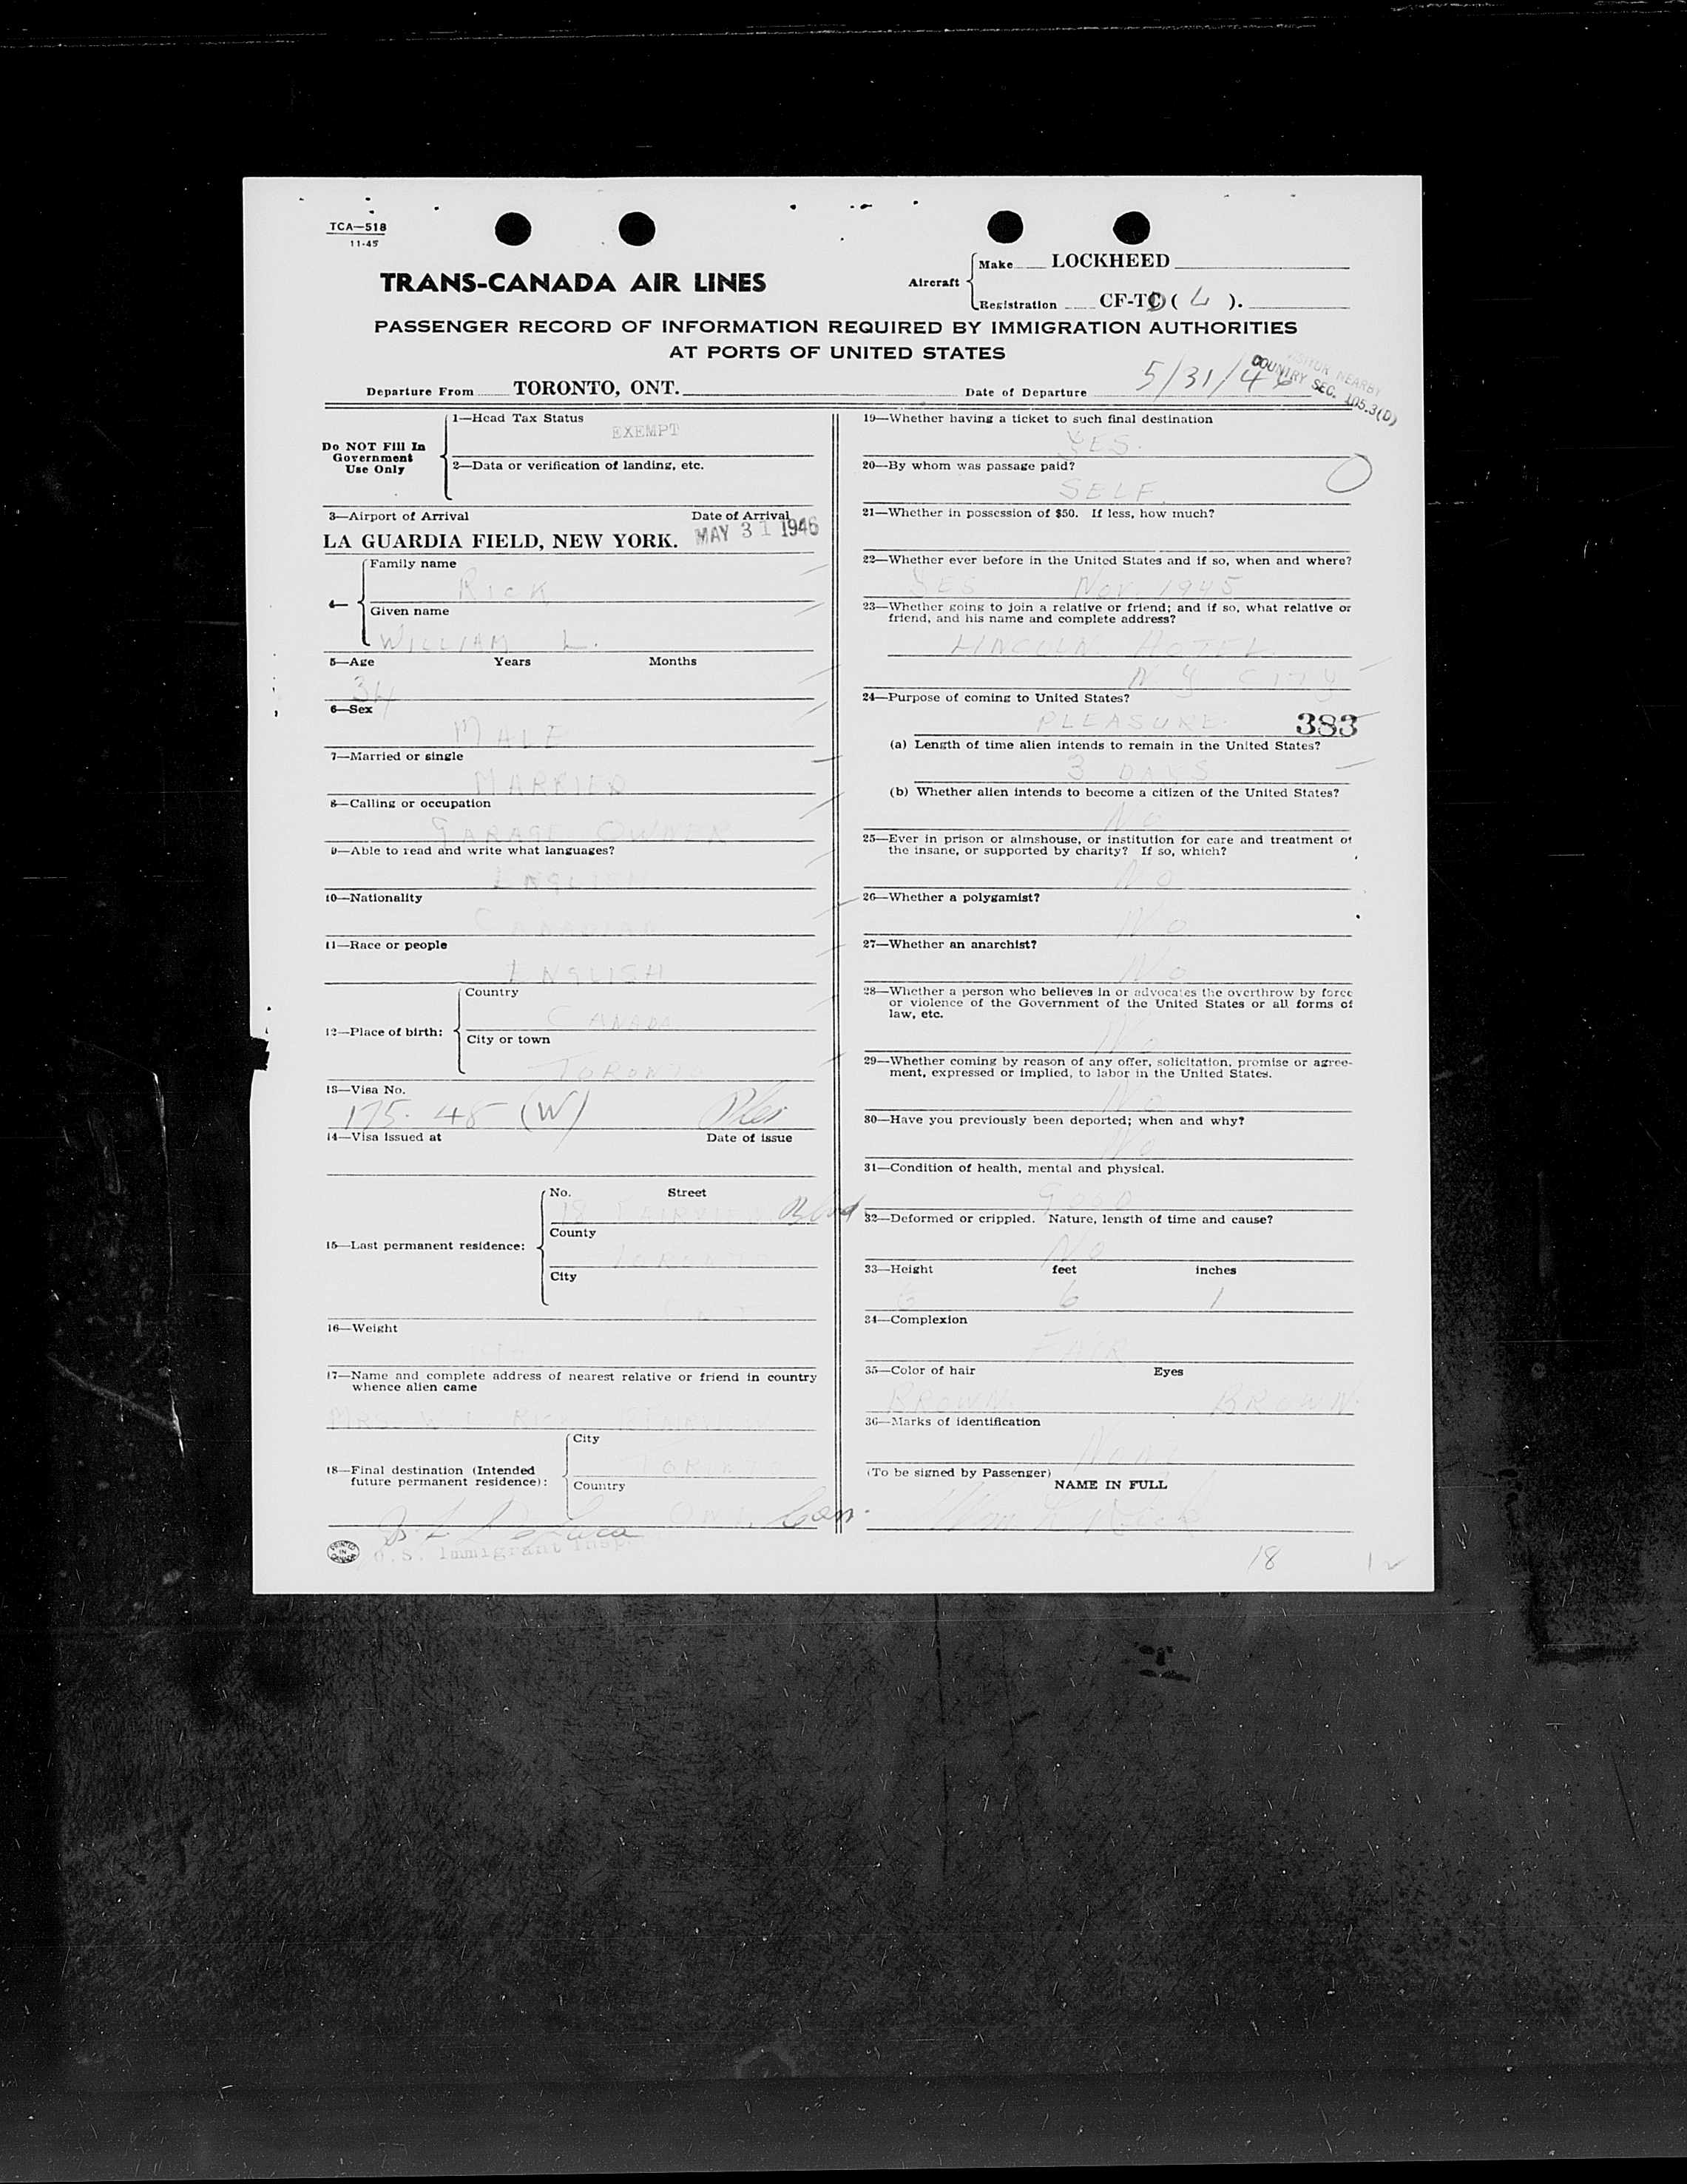 TCA—518
11-45
TRANS-CANADA AIR LINES
Aircraft
Make LOCKHEED
Registration CF-TC ( L ).
PASSENGER RECORD OF INFORMATION REQUIRED BY IMMIGRATION AUTHORITIES
AT PORTS OF UNITED STATES
VISITOR NEARBY
COUNTRY SEC. 105.3(D)
Departure From TORONTO, ONT. Date of Departure 5/31/46
Do NOT Fill In
Government
Use Only
1—Head Tax Status
EXEMPT
2—Data or verification of landing, etc.
3—Airport of Arrival Date of Arrival
LA GUARDIA FIELD, NEW YORK. MAY 31 1946
4—
Family name
RICK
Given name
WILLIAM L.
5—Age Years Months
34
6—Sex
MALE
7—Married or single
MARRIED
8—Calling or occupation
GARAGE OWNER
9—Able to read and write what languages?
ENGLISH
10—Nationality
CANADIAN
11—Race or people
ENGLISH
12—Place of birth:
Country
CANADA
City or town
TORONTO
13—Visa No.
175. 45 (W)
14—Visa issued at Date of issue
15—Last permanent residence:
No. Street
18 FAIRVIEW Blvd
County
TORONTO
City
ONT
16—Weight
17—Name and complete address of nearest relative or friend in country
whence alien came
MRS. W L RICK FAIRVIEW
18—Final destination (Intended
future permanent residence):
City
TORONTO
Country
Ont. Can.
U.S. Immigrant Insp.
PRINTED IN CANADA
19—Whether having a ticket to such final destination
YES.
20—By whom was passage paid?
SELF
21—Whether in possession of $50. If less, how much?
22—Whether ever before in the United States and if so, when and where?
YES NOV. 1945
23—Whether going to join a relative or friend; and if so, what relative or
friend, and his name and complete address?
LINCOLN HOTEL
N Y CITY
24—Purpose of coming to United States?
PLEASURE. 383
(a) Length of time alien intends to remain in the United States?
3 DAYS
(b) Whether alien intends to become a citizen of the United States?
NO
25—Ever in prison or almshouse, or institution for care and treatment of
the insane, or supported by charity? If so, which?
NO
26—Whether a polygamist?
NO
27—Whether an anarchist?
NO
28—Whether a person who believes in or advocates the overthrow by force
or violence of the Government of the United States or all forms of
law, etc.
NO
29—Whether coming by reason of any offer, solicitation, promise or agree-
ment, expressed or implied, to labor in the United States.
NO
30—Have you previously been deported; when and why?
NO
31—Condition of health, mental and physical.
GOOD
32—Deformed or crippled. Nature, length of time and cause?
NO
33—Height feet inches
6 1
34—Complexion
FAIR
35—Color of hair Eyes
BROWN BROWN
36—Marks of identification
NONE
(To be signed by Passenger)
NAME IN FULL
Wm L Rick
18 12